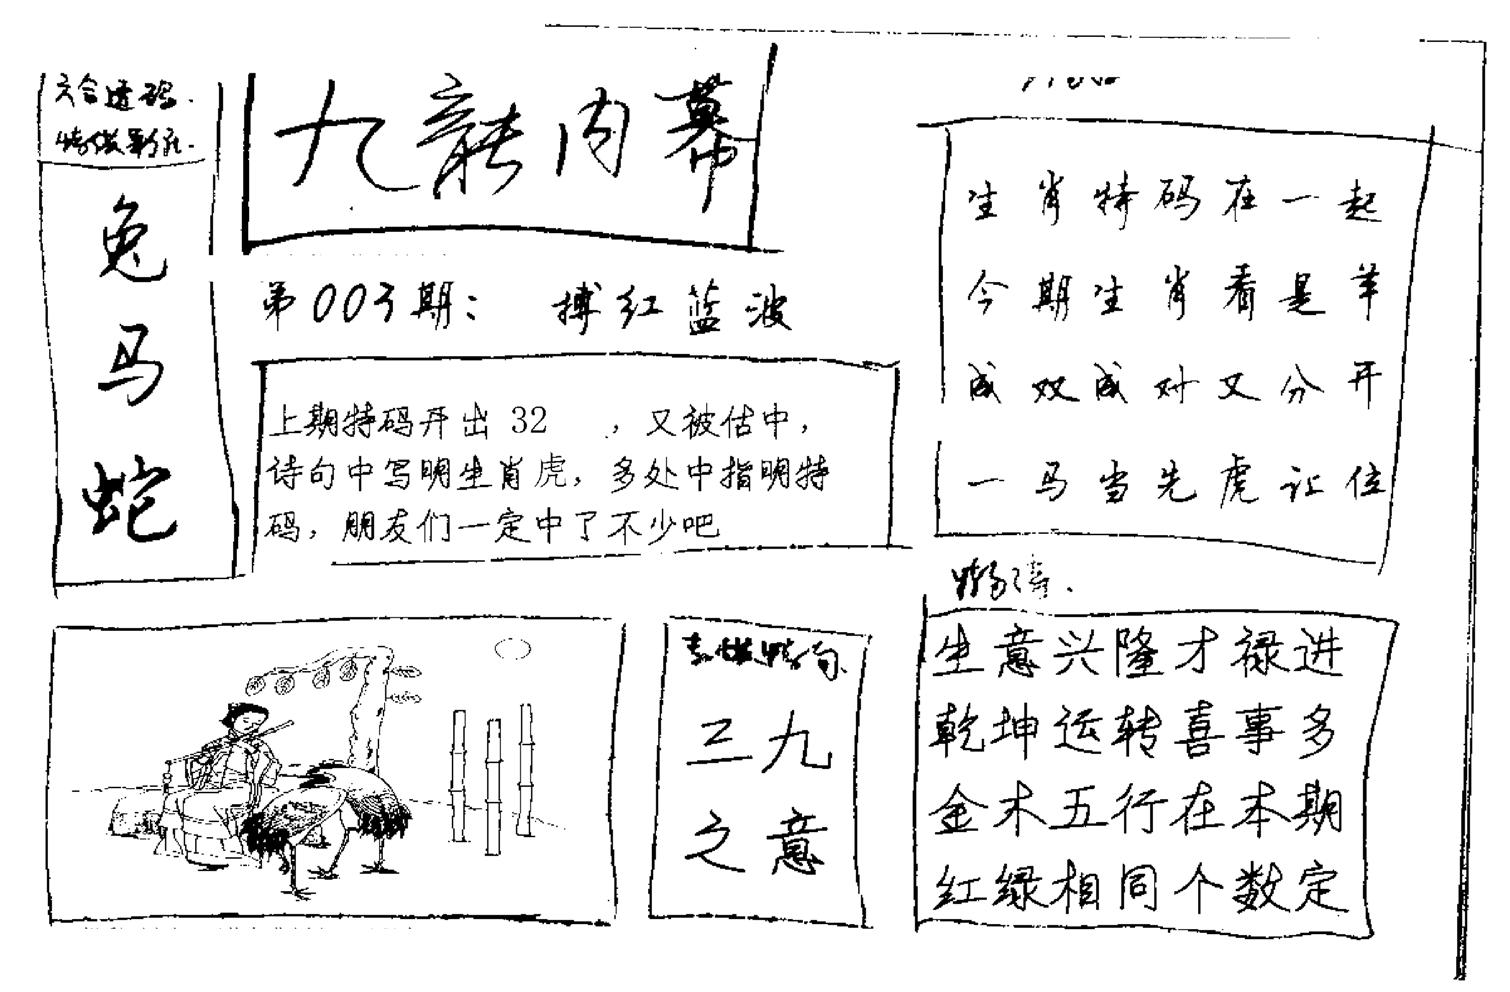 六合透码.
九龍内幕
兔
马
蛇
第003期： 搏红蓝波
上期特码开出 32 ，又被估中，
诗句中写明生肖虎，多处中指明特
码，朋友们一定中了不少吧
生肖特码在一起
今期生肖看是羊
成双成对又分开
一马当先虎让位
三九
之意
生意兴隆才禄进
乾坤运转喜事多
金木五行在本期
红绿相同个数定